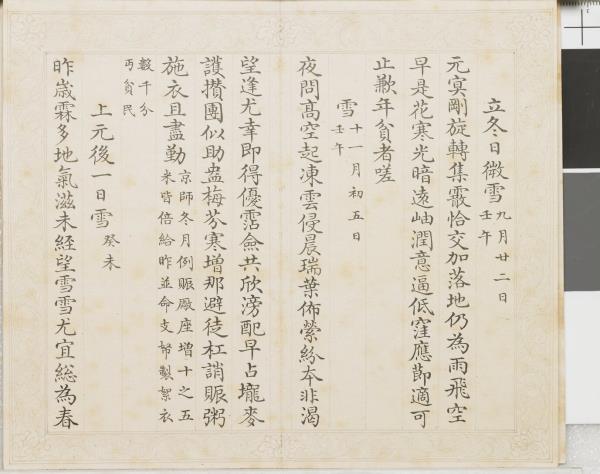 立冬日微雪 九月廿二日
壬午
元冥剛旋轉集霰恰交加落地仍為雨飛空
早是花寒光暗遠岫潤意逼低窪應節適可
止歉年貧者嗟
雪 十一月初五日
壬午
夜問高空起凍雲侵晨瑞葉佈縈紛本非渴
望逢尤幸即得優霑僉共欣滂配早占壠麥
護攢團似助盎梅芬寒增那避徒杠誚賑粥
施衣且盡勤 京師冬月例賑廠座增十之五
米皆倍給昨並命支帑製絮衣
數千分
丐貧民
上元後一日雪 癸未
昨歲霖多地氣滋未經望雪雪尤宜總為春